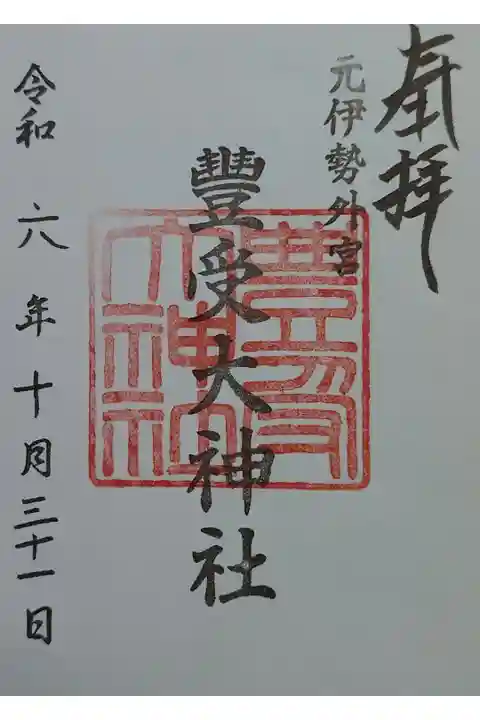 奉拝
元伊勢外宮
豐受大神社
令和六年十月三十一日